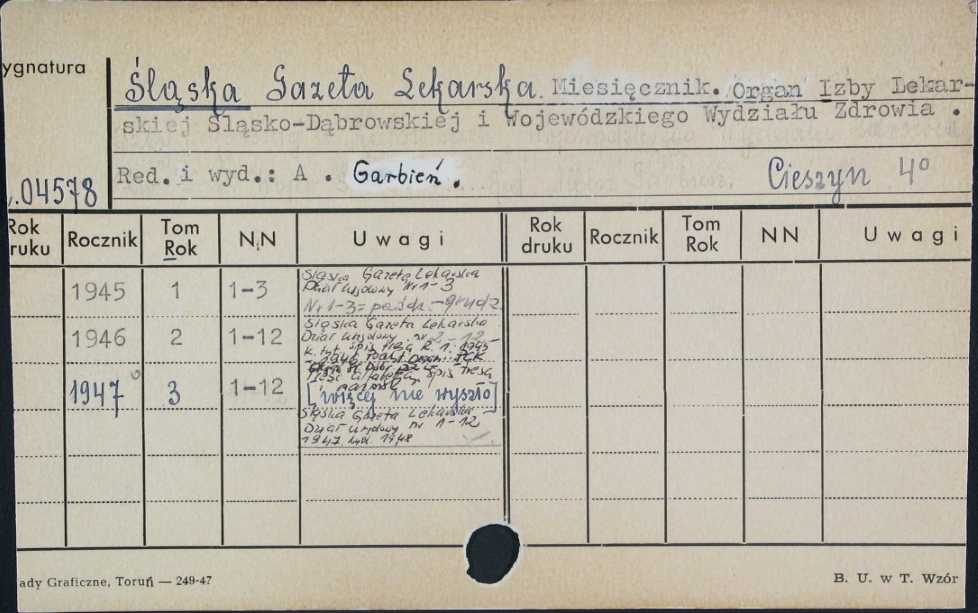 ygnatura
Śląska Gazeta Lekarska. Miesięcznik. Organ Izby Lekar-
skiej Śląsko-Dąbrowskiej i Wojewódzkiego Wydziału Zdrowia .
Red. i wyd.: A . Garbień. Cieszyn 4°
.04578
Rok ruku Rocznik Tom Rok N.N Uwagi Rok druku Rocznik Tom Rok NN Uwagi
1945 1 1-3
Śląska Gazeta Lekarska
Dział urzędowy Nr 1-3
Nr 1-3 = paźdz. - grudz.
1946 2 1-12
Śląska Gazeta Lekarska
Dział urzędowy nr 2-12
K. tyt. spis treś. R. 1. 1945
1946
spis treści
1947 3 1-12
[więcej nie wyszło]
Śląska Gazeta Lekarska
Dział urzędowy nr 1-12
1947 1948
ady Graficzne, Toruń — 249-47
B. U. w T. Wzór